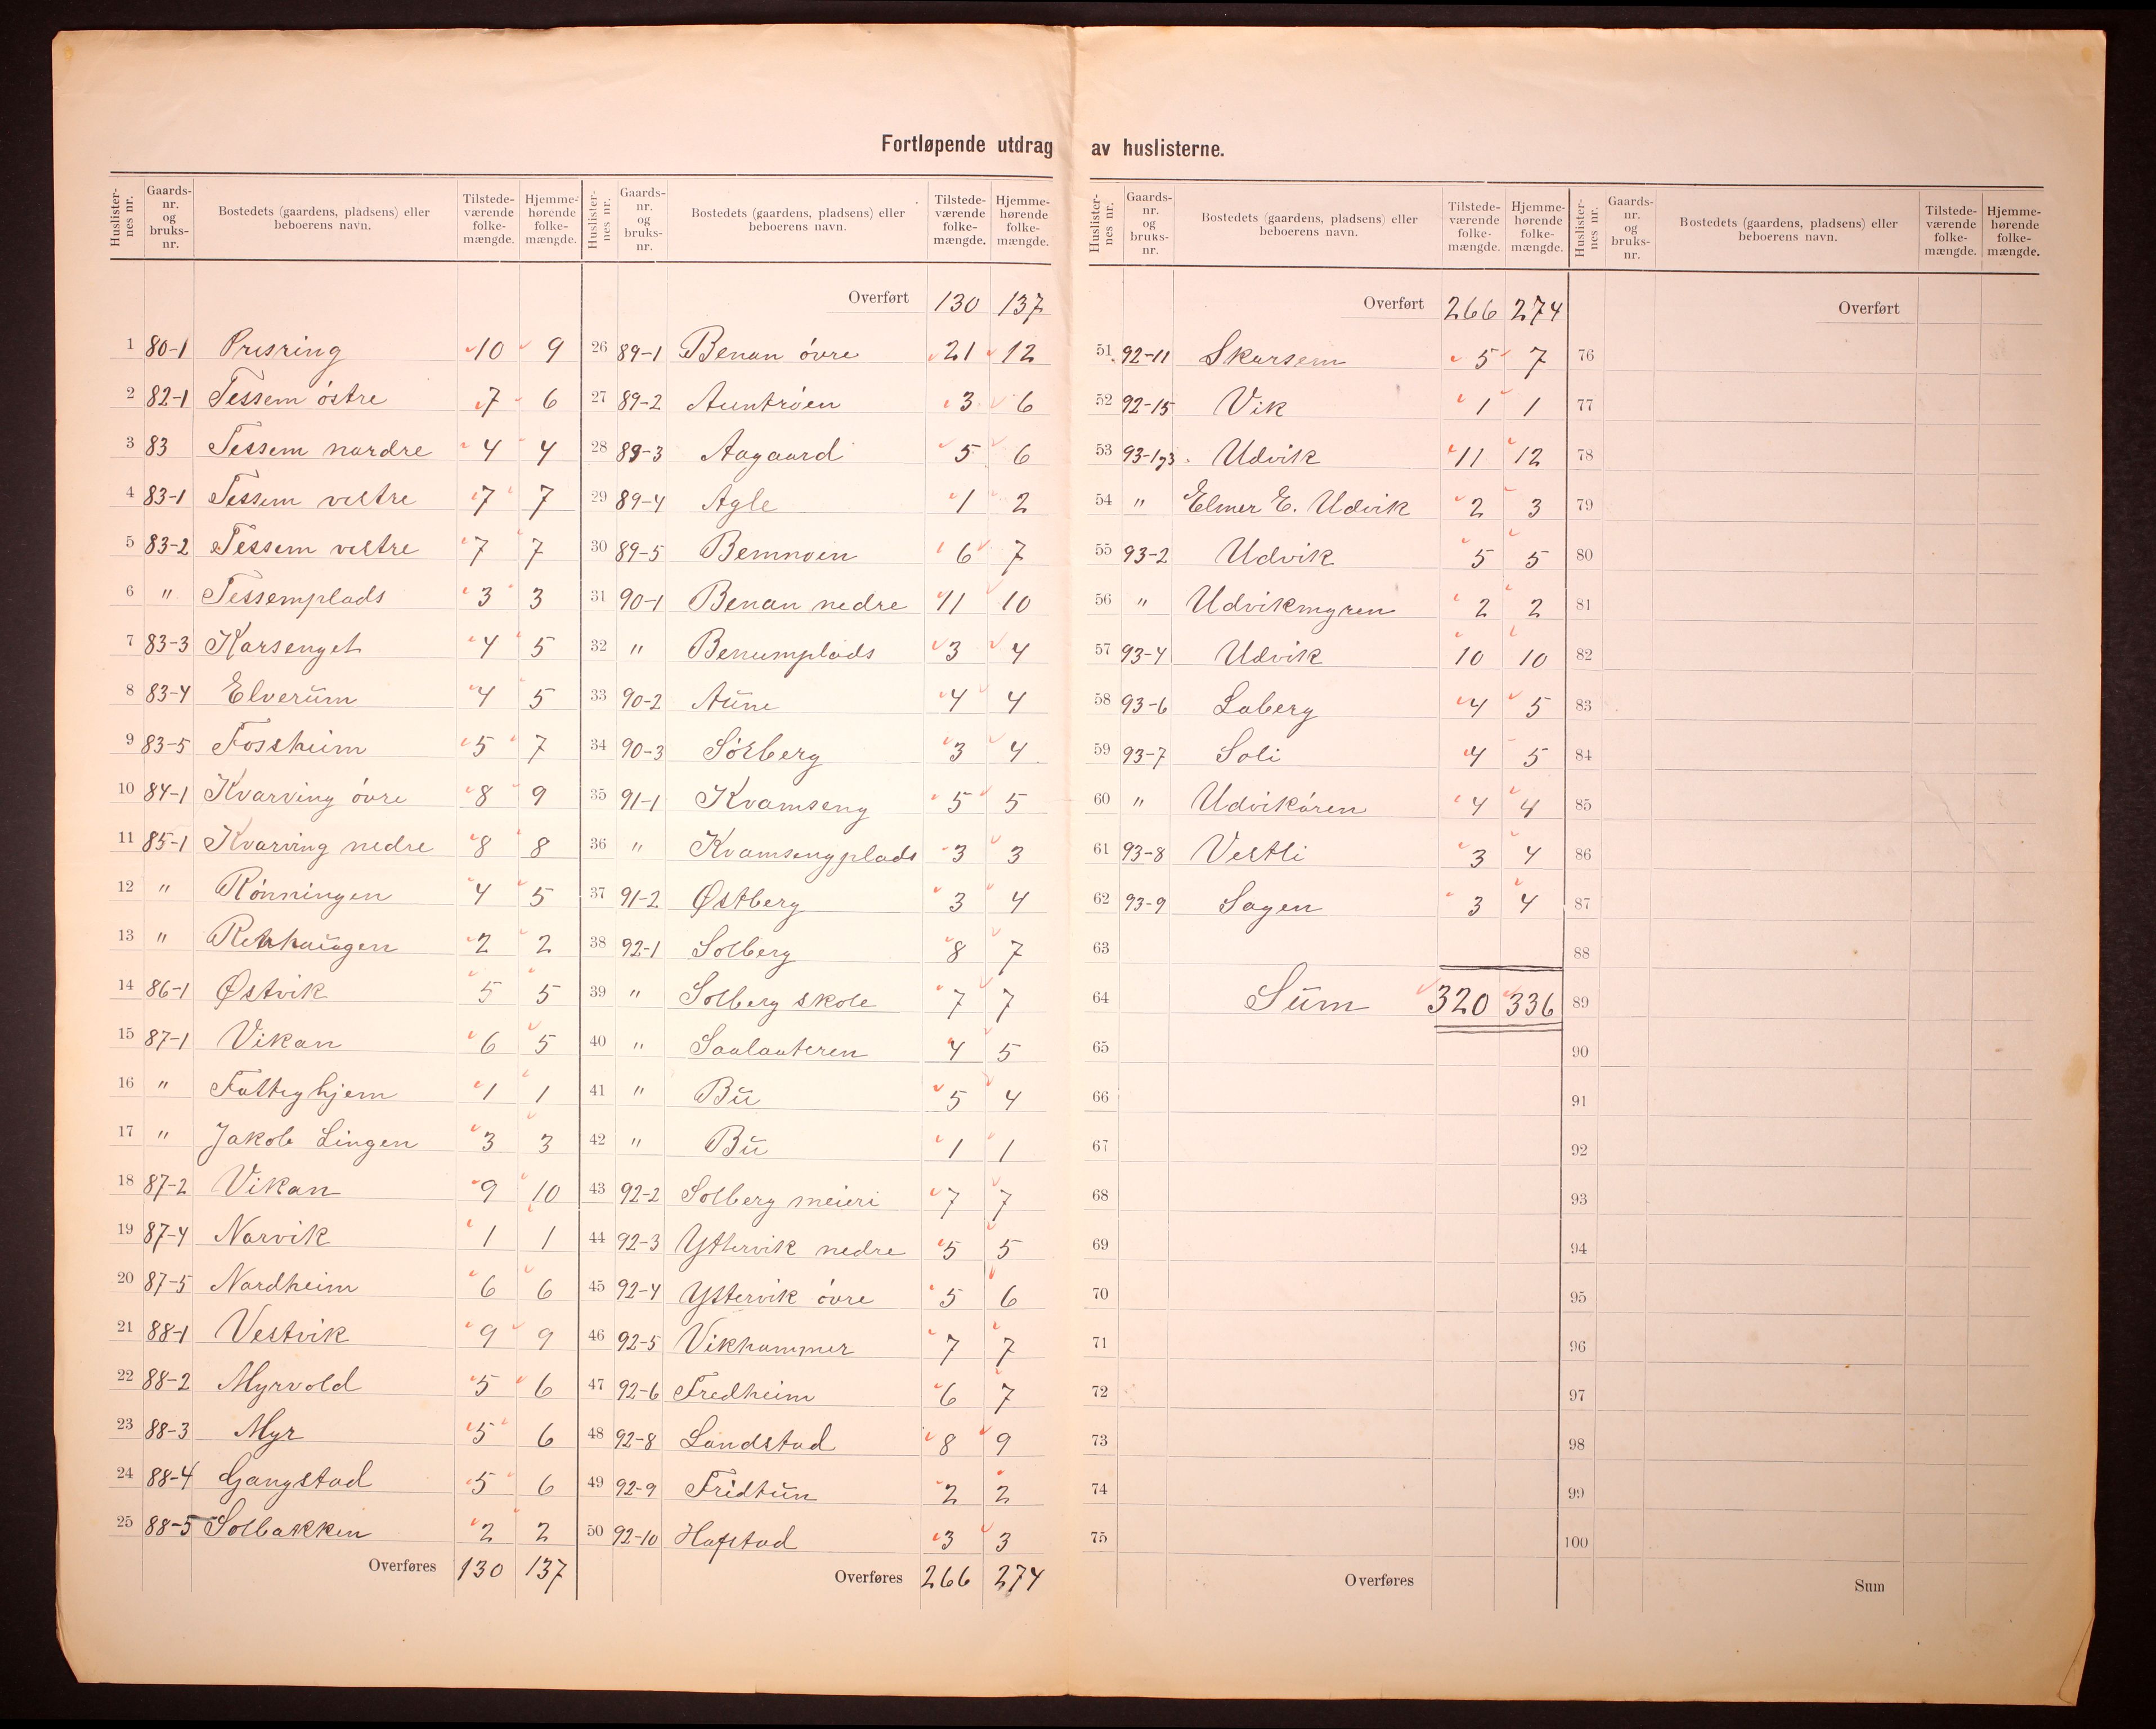 Fortløpende utdrag av huslisterne.
Huslister-nes nr. Gaards-nr. og bruks-nr. Bostedets (gaardens, pladsens) eller beboerens navn. Tilstede-værende folke-mængde. Hjemme-hørende folke-mængde.
1 80-1 Presring 10 9
2 82-1 Tessem østre 7 6
3 83 Tessem nordre 4 4
4 83-1 Tessem vestre 7 7
5 83-2 Tessem vestre 7 7
6 " Tessemplads 3 3
7 83-3 Karsenget 4 5
8 83-4 Elverum 4 5
9 83-5 Fossheim 5 7
10 84-1 Kvarving øvre 8 9
11 85-1 Kvarving nedre 8 8
12 " Rønningen 4 5
13 " 2 2
14 86-1 Østvik 5 5
15 87-1 Vikan 6 5
16 " Fattighjem 1 1
17 " Jakob Lingen 3 3
18 87-2 Vikan 9 10
19 87-4 Narvik 1 1
20 87-5 Nordheim 6 6
21 88-1 Vestvik 9 9
22 88-2 Myrvold 5 6
23 88-3 Myr 5 6
24 88-4 Gangstad 5 6
25 88-5 Solbakken 2 2
Overføres 130 137
Huslister-nes nr. Gaards-nr. og bruks-nr. Bostedets (gaardens, pladsens) eller beboerens navn. Tilstede-værende folke-mængde. Hjemme-hørende folke-mængde.
Overført 130 137
26 89-1 Benan øvre 21 12
27 89-2 Auntrøen 3 6
28 89-3 Aagaard 5 6
29 89-4 Agle 1 2
30 89-5 Bemnoen 6 7
31 90-1 Benan nedre 11 10
32 " Benumplads 3 4
33 90-2 Aune 4 4
34 90-3 Solberg 3 4
35 91-1 Kvamseng 5 5
36 " Kvamsengplads 3 3
37 91-2 Østberg 3 4
38 92-1 Solberg 8 7
39 " Solberg skole 7 7
40 " 4 5
41 " Bu 5 4
42 " Bu 1 1
43 92-2 Solberg meieri 7 7
44 92-3 Yttervik nedre 5 5
45 92-4 Yttervik øvre 5 6
46 92-5 Vikhammer 7 7
47 92-6 Fredheim 6 7
48 92-8 Landstad 8 9
49 92-9 Fridtun 2 2
50 92-10 Hofstad 3 3
Overføres 266 274
Huslister-nes nr. Gaards-nr. og bruks-nr. Bostedets (gaardens, pladsens) eller beboerens navn. Tilstede-værende folke-mængde. Hjemme-hørende folke-mængde.
Overført 266 274
51 92-11 Skarsem 5 7
52 92-15 Vik 1 1
53 93-1,3 Udvik 11 12
54 " Elmer E. Udvik 2 3
55 93-2 Udvik 5 5
56 " Udvikmyren 2 2
57 93-4 Udvik 10 10
58 93-6 Laberg 4 5
59 93-7 Soli 4 5
60 " Udvikøren 4 4
61 93-8 Vestli 3 4
62 93-9 Sagen 3 4
63
64 Sum 320 336
65
66
67
68
69
70
71
72
73
74
75
Overføres
Huslister-nes nr. Gaards-nr. og bruks-nr. Bostedets (gaardens, pladsens) eller beboerens navn. Tilstede-værende folke-mængde. Hjemme-hørende folke-mængde.
Overført
76
77
78
79
80
81
82
83
84
85
86
87
88
89
90
91
92
93
94
95
96
97
98
99
100
Sum